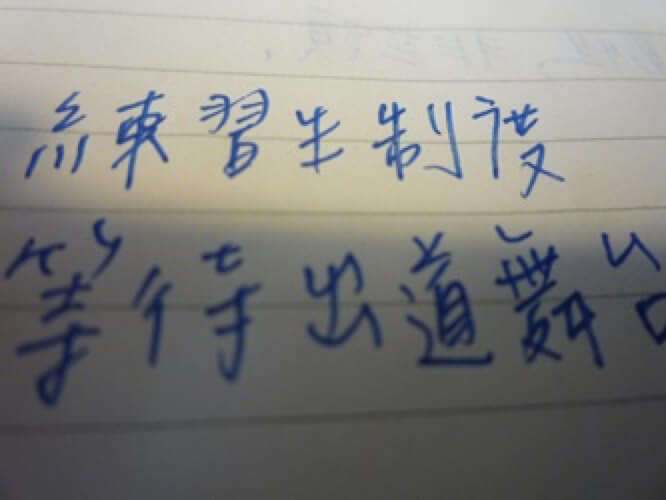 練習生制度
等待出道舞台